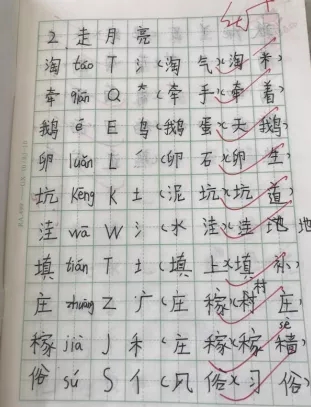 2 走月亮
淘 táo T 氵(淘气)(淘米)
牵 qiān Q 大(牵手)(牵着)
鹅 é E 鸟(鹅蛋)(天鹅)
卵 luǎn L (卵石)(卵生)
坑 kēng K 土(泥坑)(坑道)
洼 wā W 氵(水洼)(洼地) 地
填 tián T 土(填上)(填补)
庄 zhuāng Z 广(庄稼)(村庄) 村
稼 jià J 禾(庄稼)(稼穑) sè
俗 sú S 亻(风俗)(习俗)